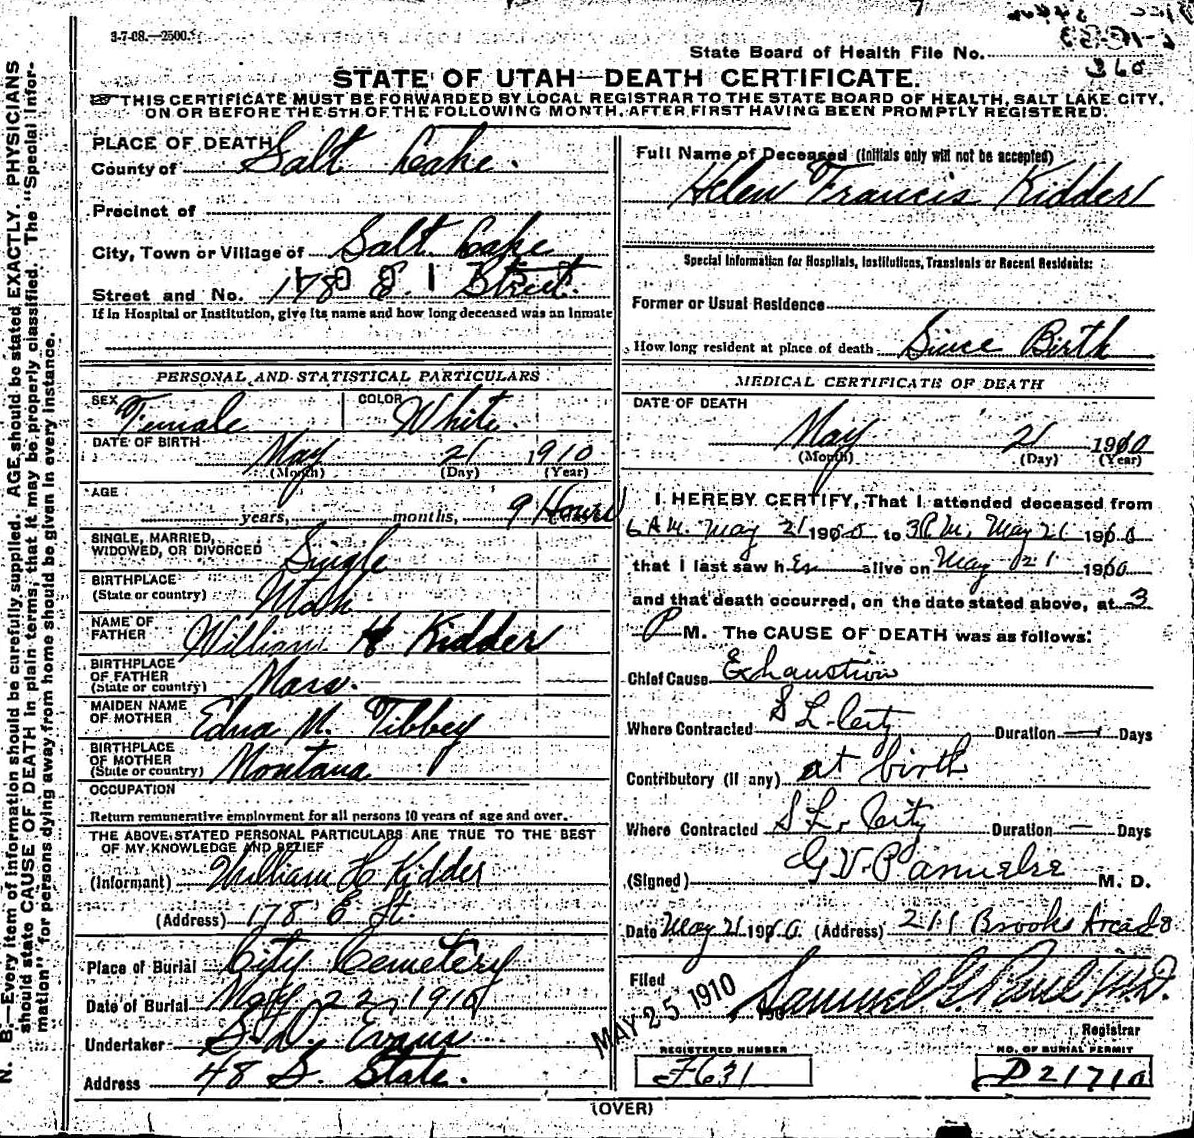 3-7-08.—2500.
State Board of Health File No.
360
STATE OF UTAH—DEATH CERTIFICATE.
THIS CERTIFICATE MUST BE FORWARDED BY LOCAL REGISTRAR TO THE STATE BOARD OF HEALTH, SALT LAKE CITY,
ON OR BEFORE THE 5TH OF THE FOLLOWING MONTH, AFTER FIRST HAVING BEEN PROMPTLY REGISTERED.
N. B.—Every item of information should be carefully supplied. AGE should be stated EXACTLY. PHYSICIANS
should state CAUSE OF DEATH in plain terms, that it may be properly classified. The "Special Infor-
mation" for persons dying away from home should be given in every instance.
PLACE OF DEATH
County of Salt Lake.
Precinct of
City, Town or Village of Salt Lake
Street and No. 178 E. Street.
If in Hospital or Institution, give its name and how long deceased was an inmate
PERSONAL AND STATISTICAL PARTICULARS
SEX Female COLOR White.
DATE OF BIRTH May 21 1910
(Month) (Day) (Year)
AGE
years, months, 9 Hours
SINGLE, MARRIED,
WIDOWED, OR DIVORCED Single
BIRTHPLACE
(State or country) Utah
NAME OF
FATHER William H Kidder
BIRTHPLACE
OF FATHER
(State or country) Mass.
MAIDEN NAME
OF MOTHER Edna M. Tibbey
BIRTHPLACE
OF MOTHER
(State or country) Montana
OCCUPATION
Return remunerative employment for all persons 10 years of age and over.
THE ABOVE STATED PERSONAL PARTICULARS ARE TRUE TO THE BEST
OF MY KNOWLEDGE AND BELIEF
(Informant) William H Kidder
(Address) 178 E St.
Place of Burial City Cemetery
Date of Burial May 22, 1910
Undertaker S. D. Evans
Address 48 S. State.
Full Name of Deceased (Initials only will not be accepted)
Helen Francis Kidder
Special Information for Hospitals, Institutions, Transients or Recent Residents:
Former or Usual Residence
How long resident at place of death Since Birth
MEDICAL CERTIFICATE OF DEATH
DATE OF DEATH
May 21 1910
(Month) (Day) (Year)
I HEREBY CERTIFY, That I attended deceased from
6 A.M. May 21 1910 to 3 P.M. May 21 1910
that I last saw her alive on May 21 1910
and that death occurred, on the date stated above, at 3
P M. The CAUSE OF DEATH was as follows:
Chief Cause Exhaustion
Where Contracted S L City Duration — Days
Contributory (if any) at birth
Where Contracted S L. City Duration — Days
(Signed) G. V. M. D.
Date May 21 1910. (Address) 211 Brooks Arcade
Filed
MAY 25 1910, 190 Samuel G. Paul M.D.
Registrar
REGISTERED NUMBER
F631
NO. OF BURIAL PERMIT
D21710
(OVER)